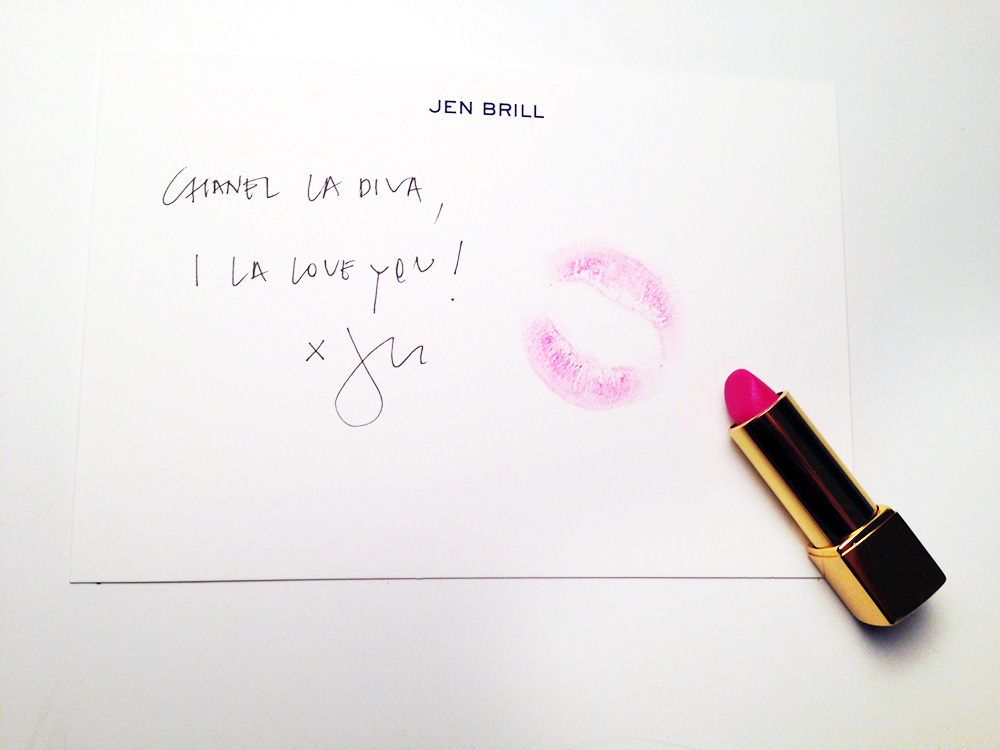 JEN BRILL
CHANEL LA DIVA,
I LA LOVE you!
x Jen